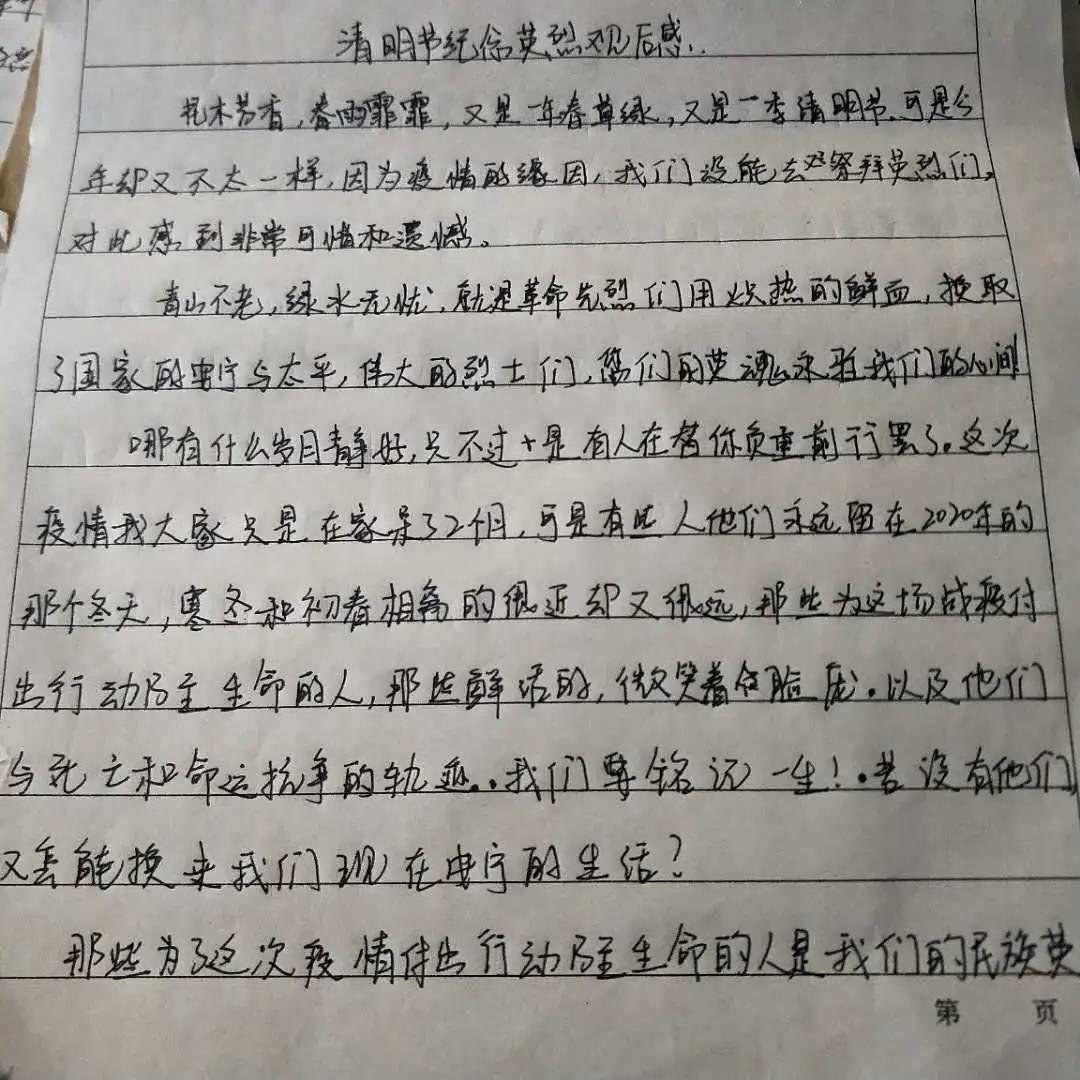 清明节纪念英烈观后感..
花木芳香,春雨霏霏,又是一年春草绿,又是一季清明节.可是今
年却又不太一样,因为疫情的缘因,我们没能去祭拜英烈们,
对此感到非常可惜和遗憾。
青山不老,绿水无忧,就是革命先烈们用炽热的鲜血,换取
了国家的安宁与太平,伟大的烈士们,您们的英魂永驻我们的心间
哪有什么岁月静好,只不过是有人在替你负重前行罢了。这次
疫情我大家只是在家呆了2个月,可是有些人他们永远留在2020年的
那个冬天,寒冬和初春相离的很近却又很远,那些为这场战疫付
出行动乃至生命的人,那些鲜活的,微笑着的脸庞.以及他们
与死亡和命运抗争的轨迹..我们要铭记一生!.若没有他们,
又怎能换来我们现在安宁的生活?
那些为了这次疫情付出行动乃至生命的人是我们的民族英
第 页